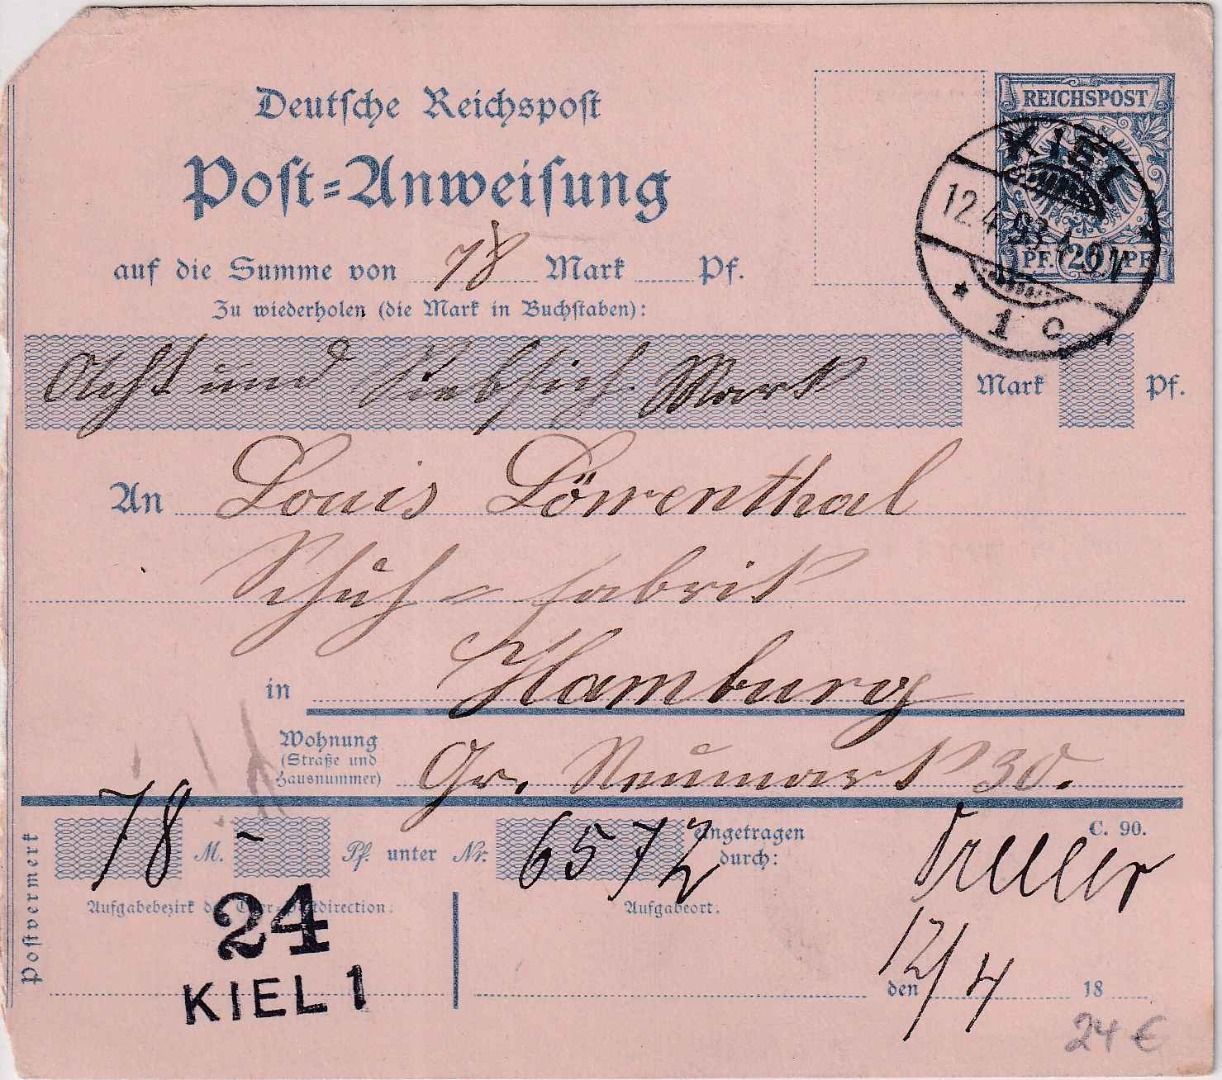 REICHSPOST
Deutsche Reichspost
Post-Anweisung
KIEL
12.4.93
PF. 20 PF.
1 c
auf die Summe von 78 Mark Pf.
Zu wiederholen (die Mark in Buchstaben):
Acht und Siebsich Mark Mark Pf.
An Louis Löwenthal
Schuh-fabrik
in Hamburg
Wohnung
(Straße und
Hausnummer)
Gr. Neumarkt 30.
Postvermerk
78 M. - Pf. unter Nr. 6572 eingetragen
durch:
C. 90.
Aufgabebezirk der Ober-Postdirection:
Aufgabeort.
24
KIEL 1
den 12/4 18
24 €